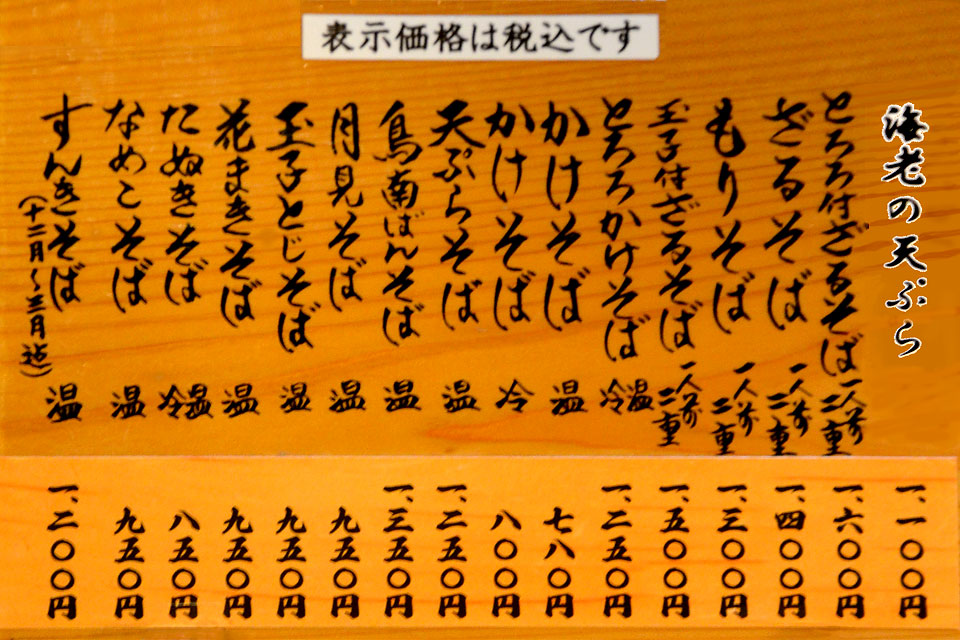 表示価格は税込です
海老の天ぷら 一、一〇〇円
とろろ付ざるそば 一人前 二重 一、六〇〇円
ざるそば 一人前 二重 一、四〇〇円
もりそば 一人前 二重 一、三〇〇円
玉子付ざるそば 一人前 二重 一、五〇〇円
とろろかけそば 冷温 一、二五〇円
かけそば 温 七八〇円
かけそば 冷 八〇〇円
天ぷらそば 温 一、二五〇円
鳥南ばんそば 温 一、三五〇円
月見そば 温 九五〇円
玉子とじそば 温 九五〇円
花まきそば 温 九五〇円
たぬきそば 冷温 八五〇円
なめこそば 温 九五〇円
すんきそば 温 一、二〇〇円
(十二月〜三月迄)